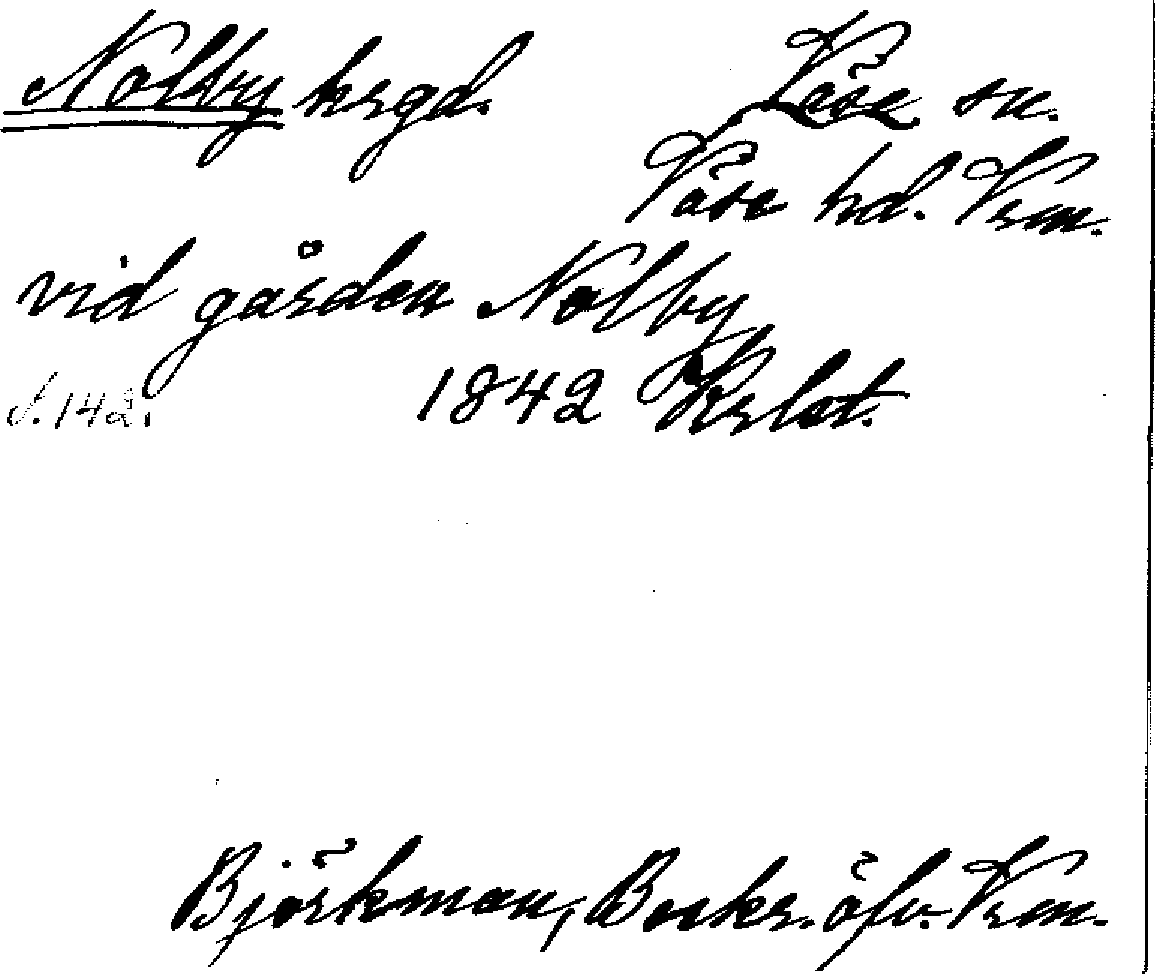 Nolby hrgd. Väse sn.
Väse hd. Vrm.
vid gården Nolby
s. 142. 1842 Krlot.
Björkman, Beskr. öfv. Vrm.